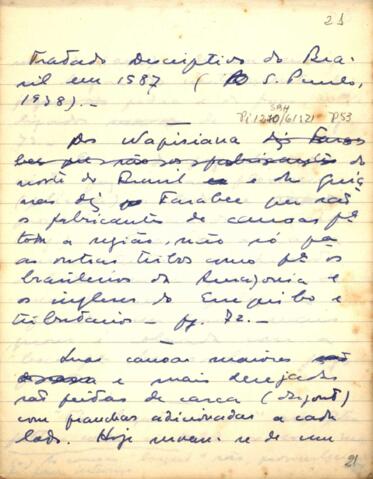 21
Tratado Descriptivo do Bra-
sil em 1587 ( S. Paulo,
1938). —
SBH
Pi 1270/6/121 P53
Os Wapisiana
norte do Brasil e da Guia-
nas diz Farabee que são
os fabricantes de canoas pa
toda a região, não só pa
as outras tribos como pa os
brasileiros da Amazonia e
os ingleses do Essequibo e
tributários — pg. 72. —
Suas canoas maiores
e mais desejadas
são feitas de casca (dugout)
com pranchas adicionadas a cada
lado. Hoje movem-se de um
21